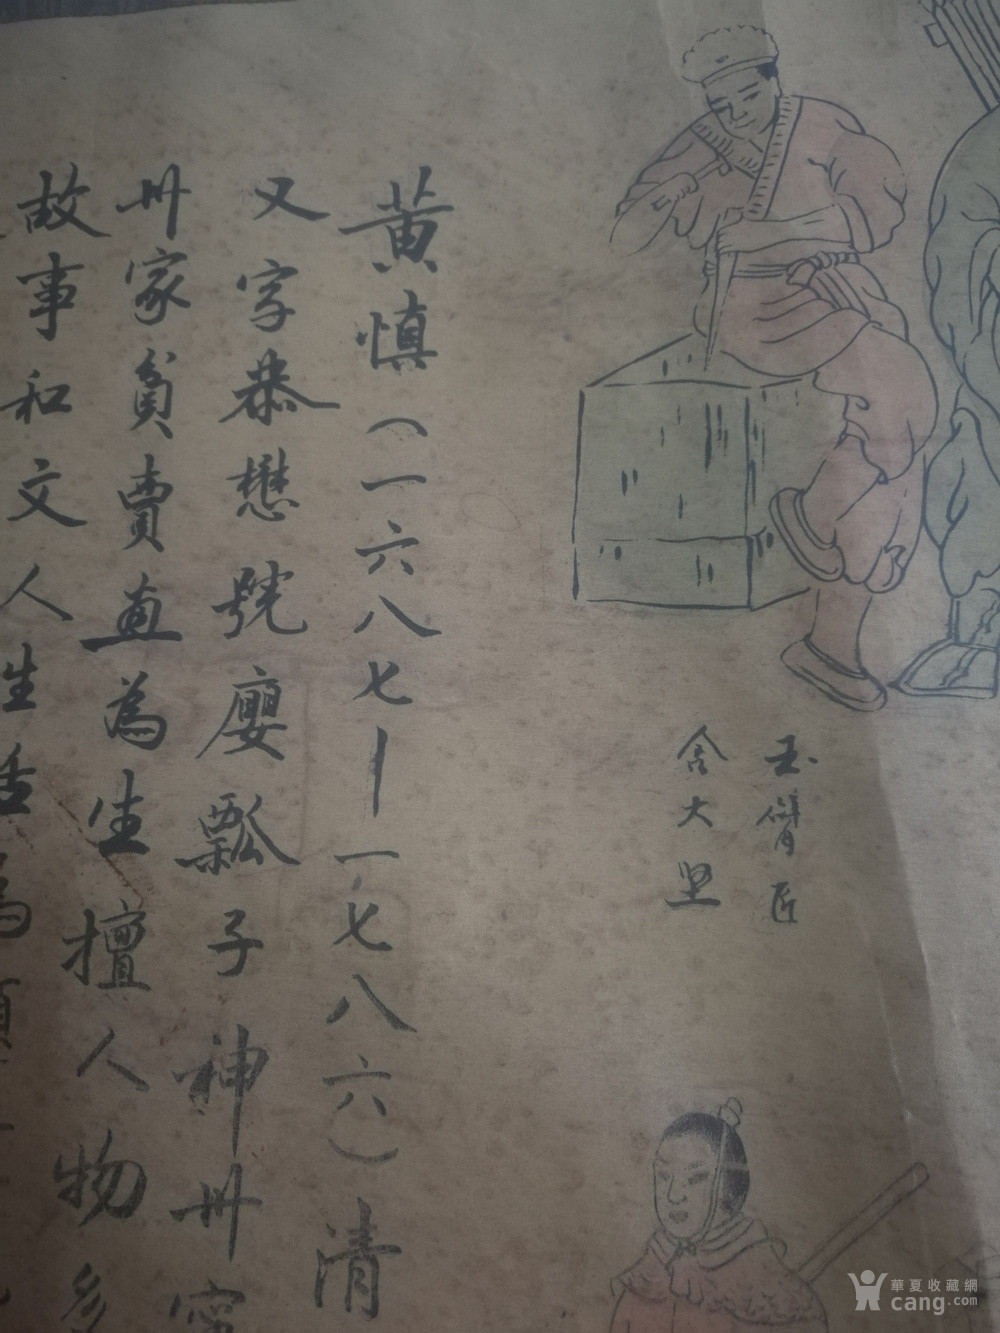 玉臂匠
金大坚
黄慎（一六八七—一七八六）清
又字恭懋號廮瓢子神州寧
州家貧賣画為生擅人物多
故事和文人生活為題
華夏收藏網
cang.com